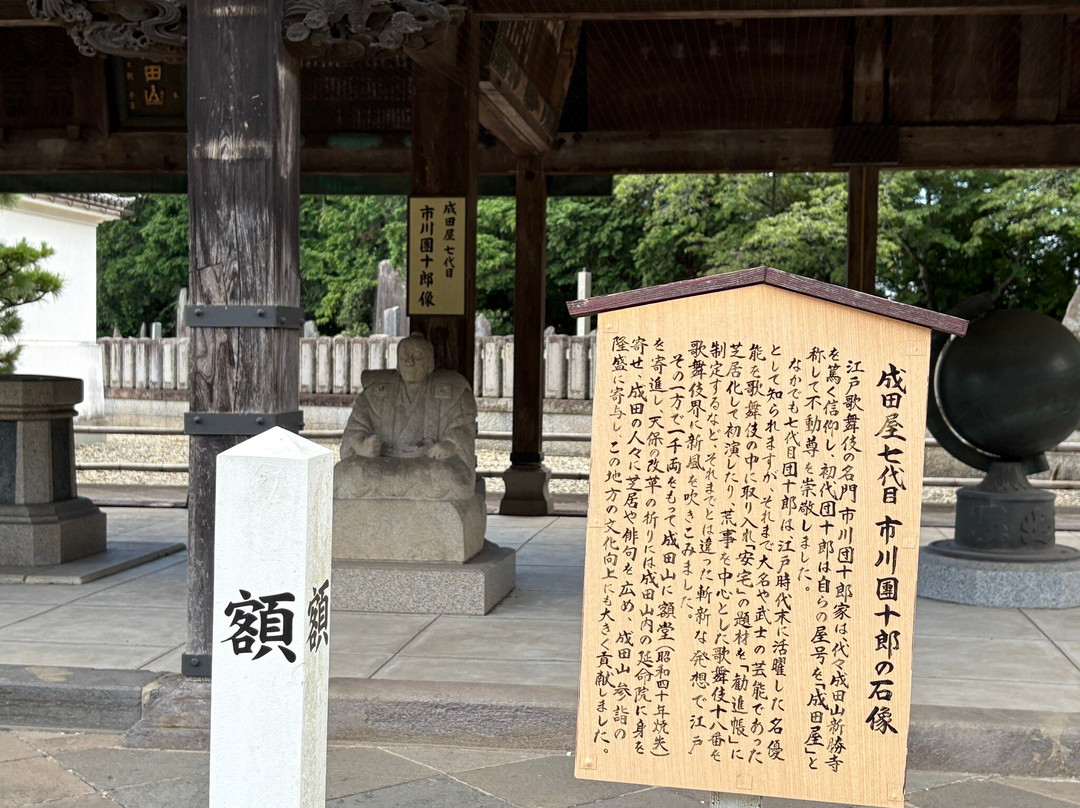 成田屋七代目 市川團十郎の石像
江戸歌舞伎の名門市川団十郎家は、代々成田山新勝寺
を篤く信仰し、初代団十郎は自らの屋号を「成田屋」と
称して不動尊を崇敬しました。
なかでも七代目団十郎は、江戸時代末に活躍した名優
として知られますが、それまで大名や武士の芸能であった
能を歌舞伎の中に取り入れ、「安宅」の題材を「勧進帳」に
芝居化して初演したり、荒事を中心とした歌舞伎十八番を
制定するなど、それまでとは違った斬新な発想で江戸
歌舞伎界に新風を吹きこみました。
その一方で一千両をもって成田山に額堂(昭和四十年焼失)
を寄進し、天保の改革の折りには成田山内の延命院に身を
寄せ、成田の人々に芝居や俳句を広め、成田山参詣の
隆盛に寄与し、この地方の文化向上にも大きく貢献しました。
成田屋 七代目
市川團十郎像
額
額
田山